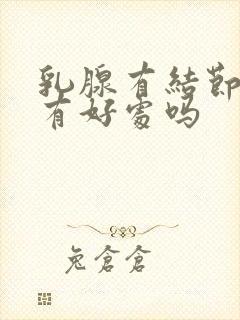 乳腺有結節
有好處吗
兔倉倉